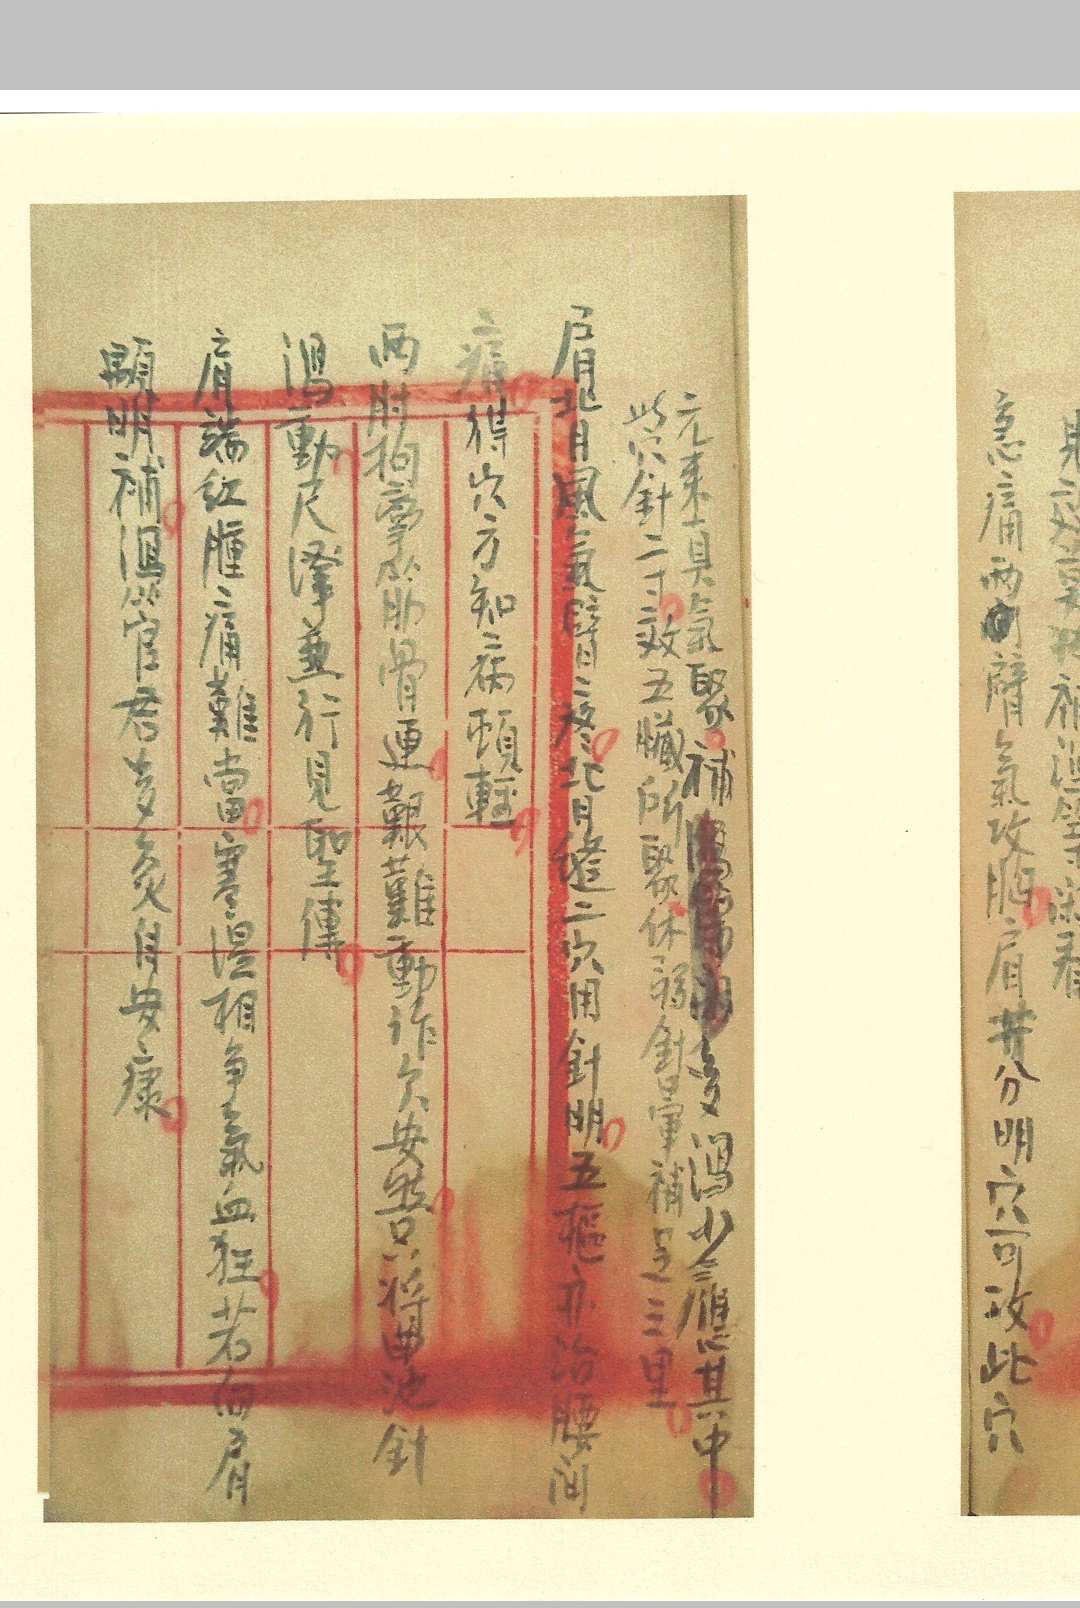 見效
急痛兩臂氣攻胸肩井分明穴可攻此穴
元來真氣聚補多瀉少應其中
此穴針二寸效五臟所聚休弱針暈補足三里
肩背風氣臂疼背縫二穴用針明五樞亦治腰间
痛得穴方知病頓輕
两肘拘攣筋骨連艱難動作欠安然只將曲池針
瀉動尺澤兼行見聖傳
肩端紅腫痛難當寒濕相争氣血狂若向肩
顒明補瀉管君多灸自安康